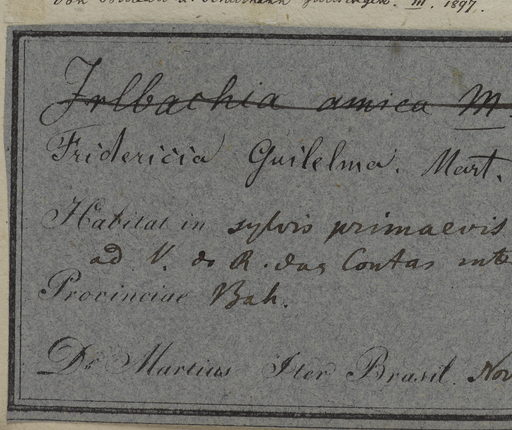 von III. 1897.
Irlbachia amica M
Fridericia Guilelma. Mart.
Habitat in sylvis primaevis
ad V. do R. das Contas inte
Provinciae Bah.
Dr. Martius Iter Brasil. Nov